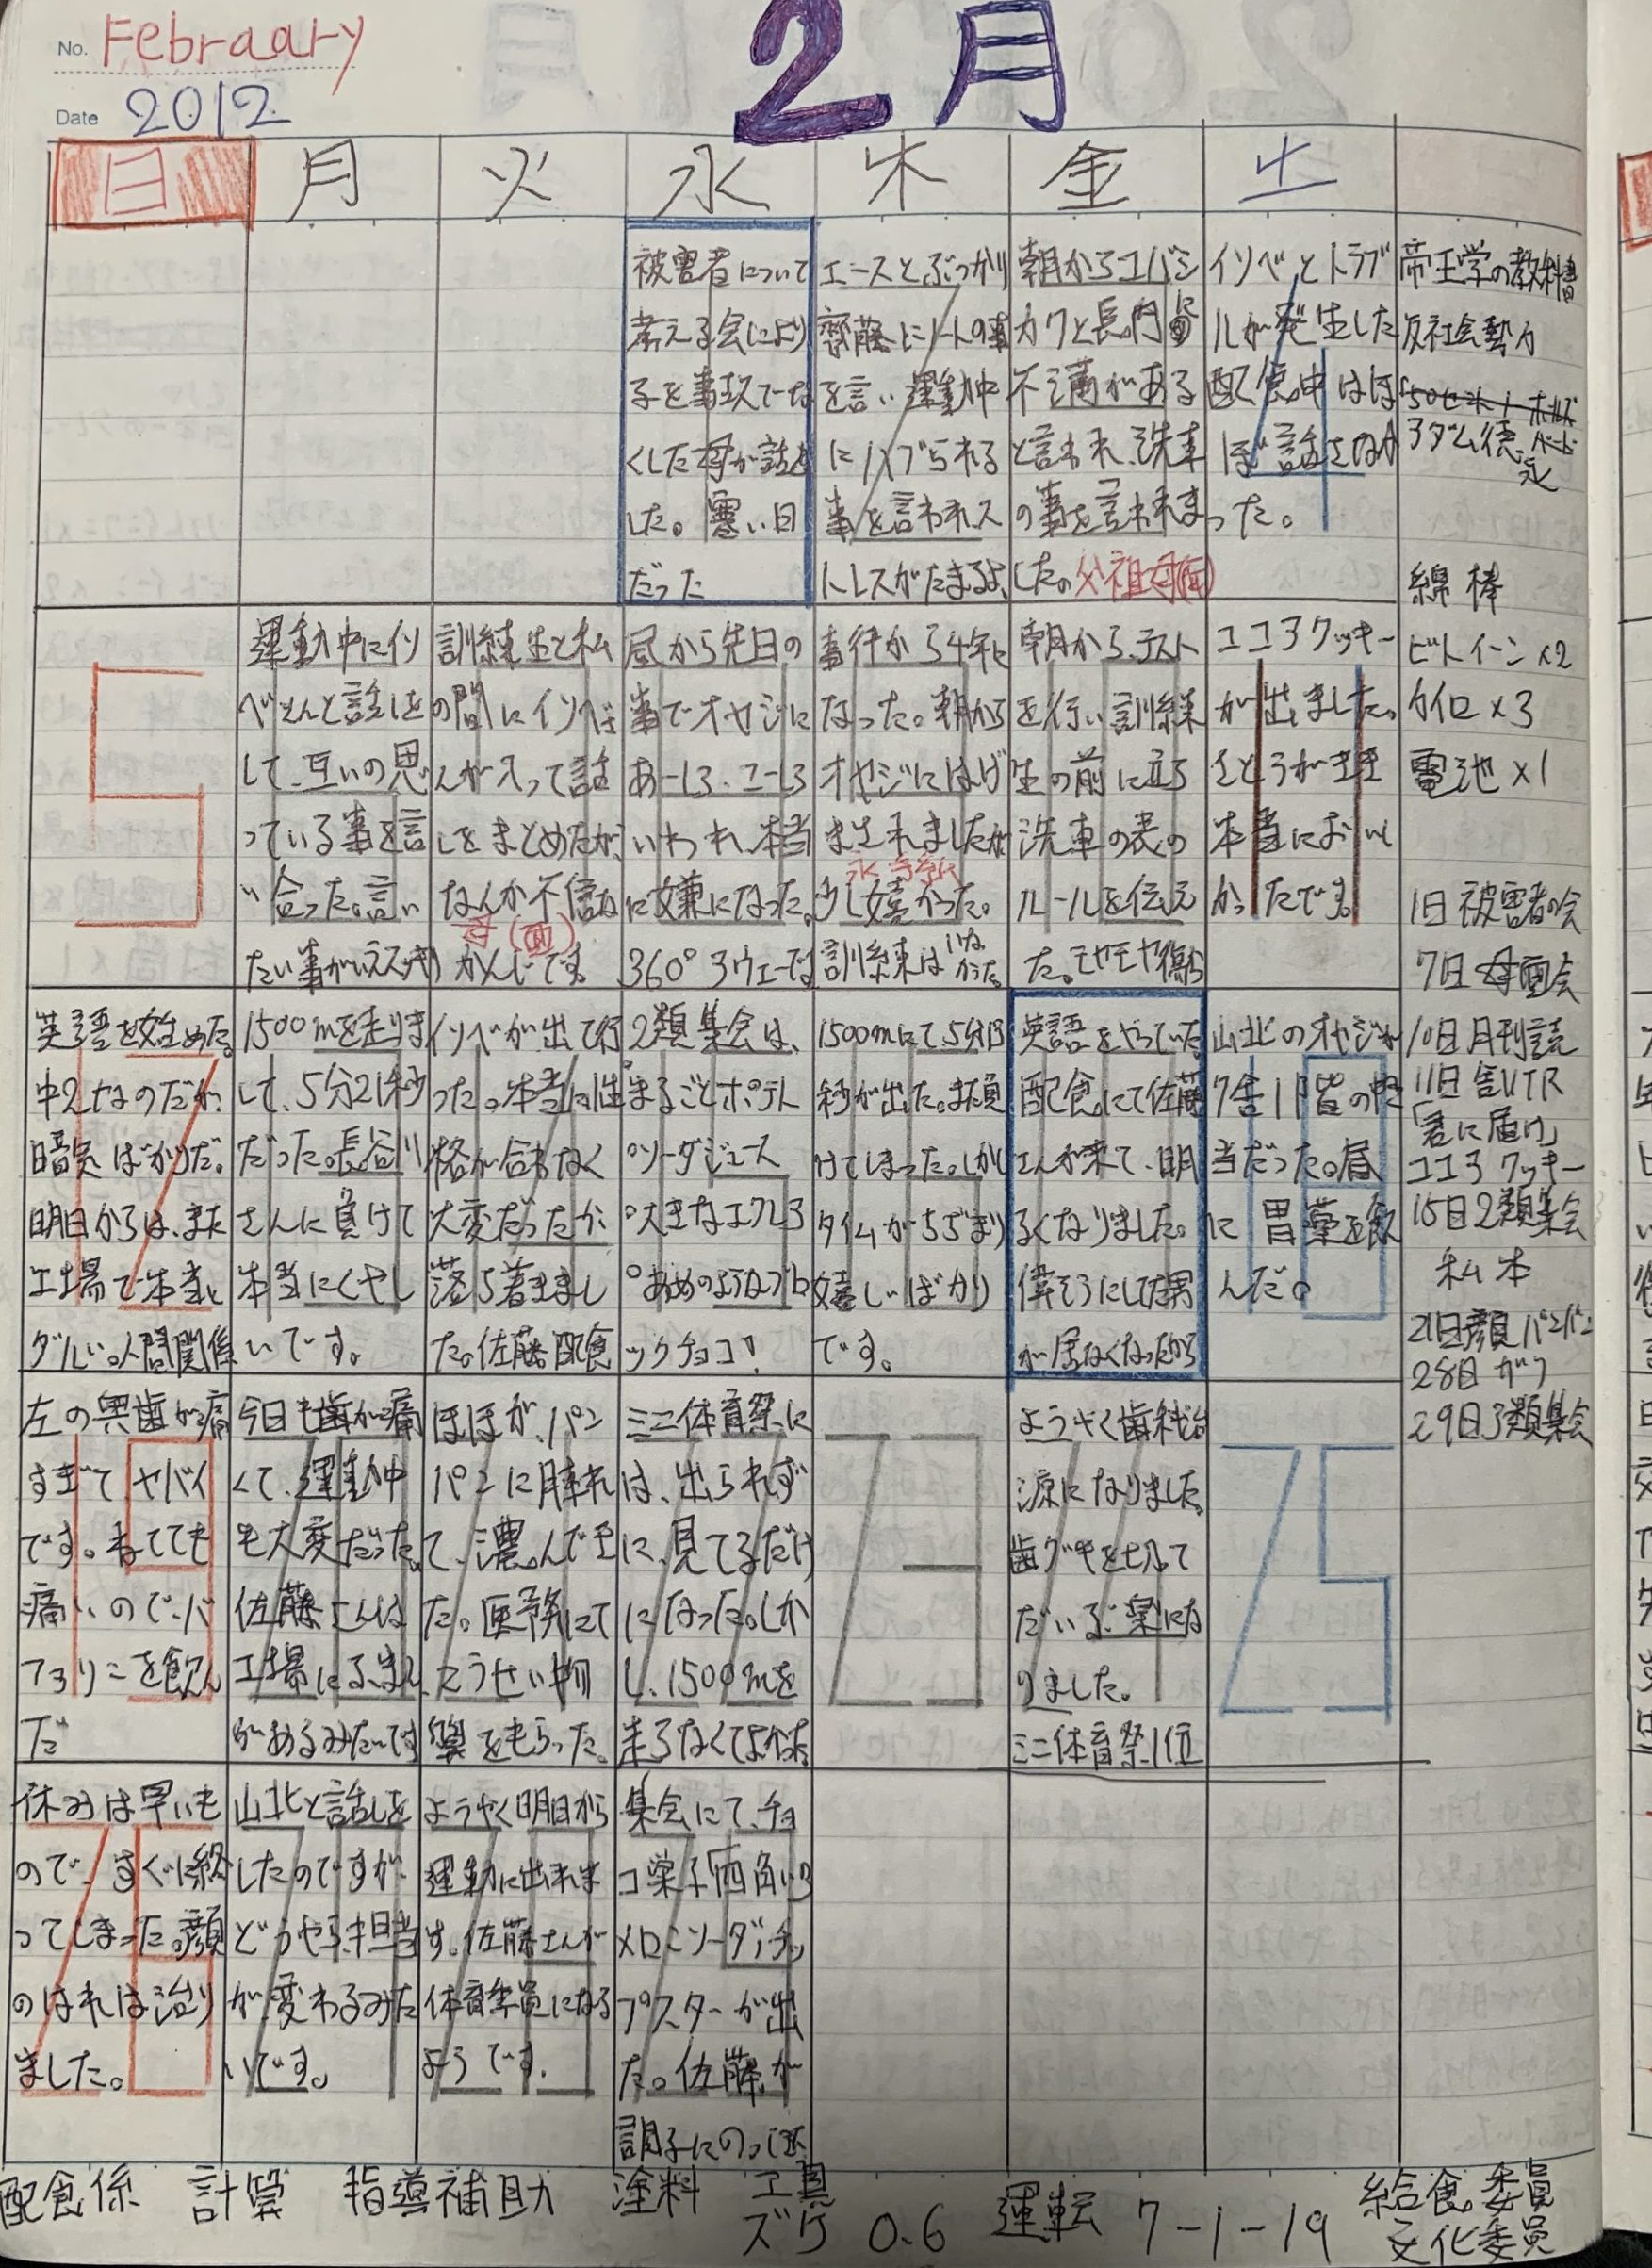 No. Febraary
Date 2012
2月
日 月 火 水 木 金 土
被害者について
考える会により
子を事故でな
くした母が話を
した。寒い日
だった
エースとぶつかり
齊藤にノートの事
を言い運動中
にハブられる
事を言われス
トレスがたまるよ、
朝からコバシ
カワと長内
不満がある
と言われ、洗車
の事を言われま
した。父祖母面
イソベとトラブ
ルが発生した
配食中はほ
ぼ話さなか
った。
帝王学の教科書
反社会勢力
アダム徳永
綿棒
ビトイーン×2
カイロ×3
電池×1
5
運動中にイソ
べさんと話しを
して、互いの思
っている事を言
い合った。言い
たい事がいえスッキリ
訓練生と私
の間にイソべさ
んが入って話
しをまとめたが、
なんか不信な
母(面)
かんじです。
昼から先日の
事でオヤジに
あーしろ、こーしろ
いわれ、本当
に嫌になった。
360°アウェーでは
事件から4年に
なった。朝から
オヤジにはげ
まされましたが
少し嬉しかった。
訓練は
朝から、テスト
を行い訓練
生の前に立ち
洗車の表の
ルールを伝え
た。モヤモヤ
ココアクッキー
が出ました。
さとうがきき
本当においし
かったです。
1日被害者の会
7日母面会
10日月刊読
11日舎VTR
「君に届け」
ココアクッキー
15日2類集会
私本
21日顔パンパン
28日ガリ
29日3類集会
英語を始めた。
中2なのだが、
暗記ばかりだ。
明日からは、また
工場で本当に
ダルい。人間関係
1500mを走りま
して、5分21秒
だった。長谷川
さんに負けて
本当にくやし
いです。
イソベが出て行
った。本当に性
格が合わなく
大変だったが、
落ち着きまし
た。佐藤配食
2類集会は、
まるごとポテト
°ソーダジュース
°大きなエクレア
°あめのようなブロ
ックチョコ!
1500mにて5分13
秒が出た。また負
けてしまった。しかし
タイムがちぢまり
嬉しいばかり
です。
英語をやっていた。
配食にて佐藤
さんが来て、明
るくなりました。
偉そうにした男
が居なくなったから
山北のオヤジが
7舎1階の担
当だった。昼
に胃薬を飲
んだ。
左の奥歯が痛
すぎてヤバイ
です。ねてても
痛いのでバ
ファリンを飲ん
だ
今日も歯が痛
くて、運動中
も大変だった。
佐藤さんは
工場にふまん
があるみたいです
ほほが、パン
パンに腫れ
て、濃んでき
た。医務にて
こうせい物
質をもらった。
ミニ体育祭に
は、出られず
に、見てるだけ
になった。しか
し、1500mを
走らなくてよかった
23
ようやく歯科治
療になりました。
歯グキを切って
だいぶ楽にな
りました。
ミニ体育祭1位
25
休みは早いも
ので、すぐに終
ってしまった。顔
のはれは治り
ました。
山北と話しを
したのですが、
どうやら、担当
が変わるみた
いです。
ようやく明日から
運動に出れま
す。佐藤さんが
体育委員になる
ようです。
集会にて、チョ
コ菓子「四角い」
メロンソーダ、チッ
プスターが出
た。佐藤が
調子にのって
配食係 計算 指導補助 塗料 工具 ズリ 0.6 運転 7-1-19 給食委員
文化委員